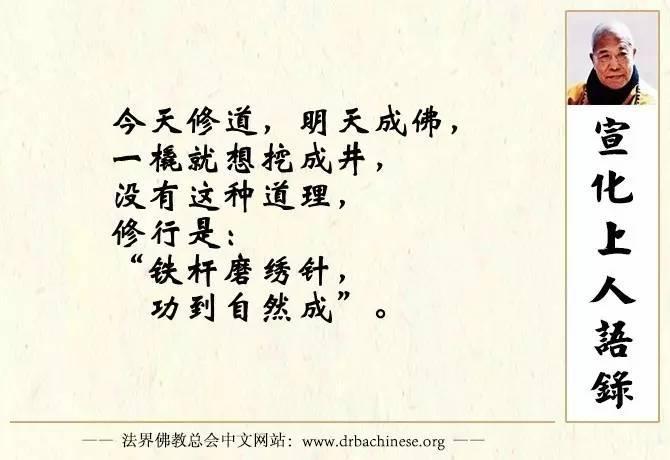 今天修道，明天成佛，
一橇就想挖成井，
没有这种道理，
修行是：
“铁杆磨绣针，
功到自然成”。
宣化上人語錄
—— 法界佛教总会中文网站：www.drbachinese.org ——